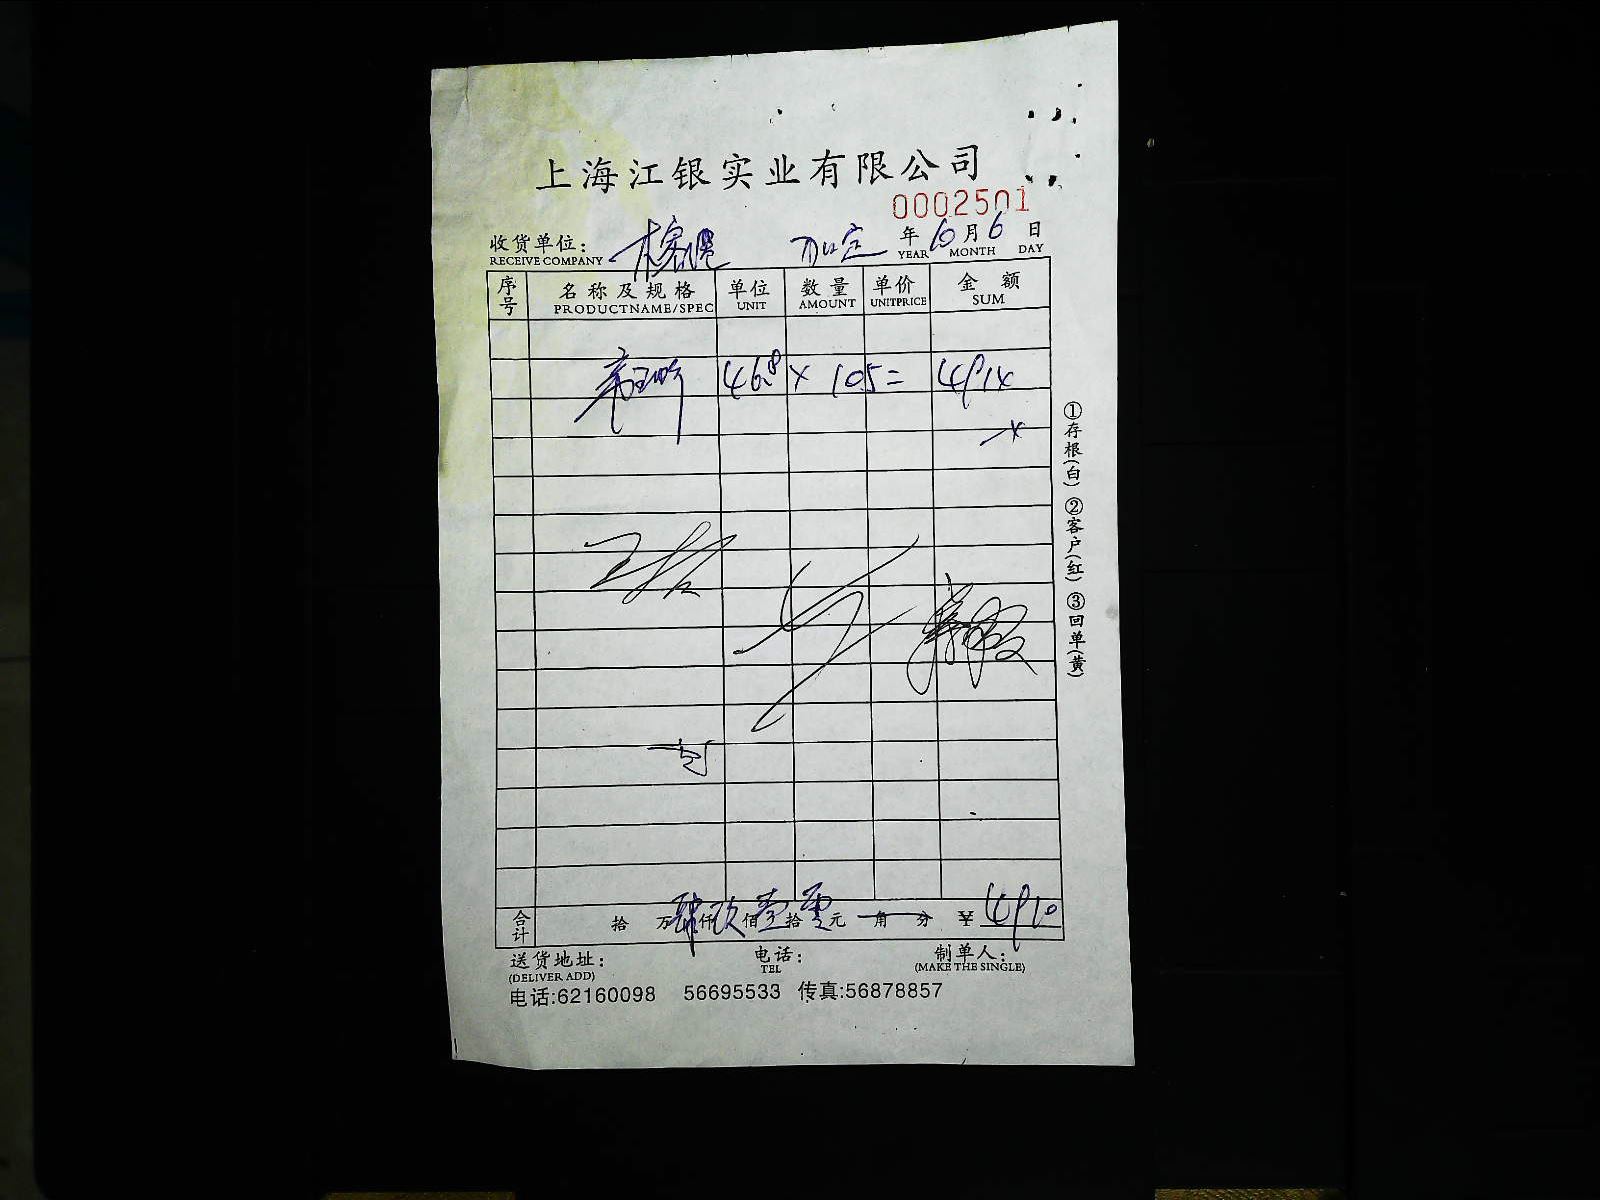 上海江银实业有限公司
0002501
收货单位: 年 10 月 6 日
RECEIVE COMPANY YEAR MONTH DAY
序号 名称及规格 单位 数量 单价 金额
PRODUCTNAME/SPEC UNIT AMOUNT UNITPRICE SUM
46.8 × 105 = 4914
①存根(白) ②客户(红) ③回单(黄)
合计 拾 万肆仟玖佰壹拾零元 角 分 ¥ 4910
送货地址: 电话: 制单人:
(DELIVER ADD) TEL (MAKE THE SINGLE)
电话:62160098 56695533 传真:56878857